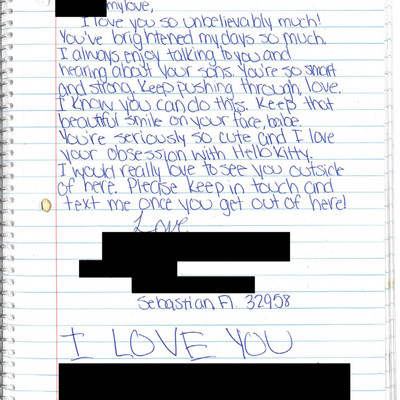 my love,
I love you so unbelievably much!
You've brightened my days so much.
I always enjoy talking to you and
hearing about your sons. You're so smart
and strong. Keep pushing through, love.
I know you can do this. Keep that
beautiful smile on your face, babe.
You're seriously so cute and I love
your obsession with Hello Kitty.
I would really love to see you outside
of here. Please keep in touch and
text me once you get out of here!
Love
Sebastian Fl. 32958
I LOVE YOU